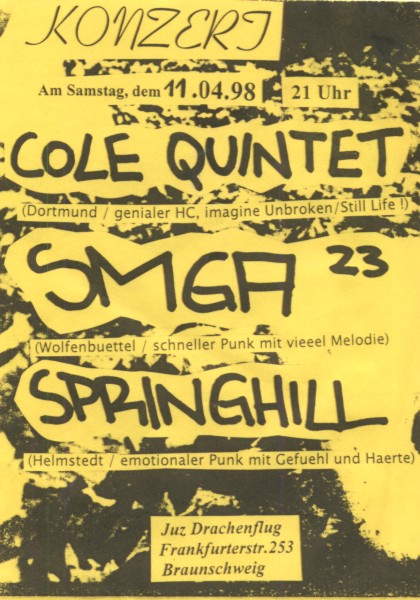 KONZERT
Am Samstag, dem 11.04.98 21 Uhr
COLE QUINTET
(Dortmund / genialer HC, imagine Unbroken/Still Life !)
SMGA 23
(Wolfenbuettel / schneller Punk mit vieeel Melodie)
SPRINGHILL
(Helmstedt / emotionaler Punk mit Gefuehl und Haerte)
Juz Drachenflug
Frankfurterstr.253
Braunschweig